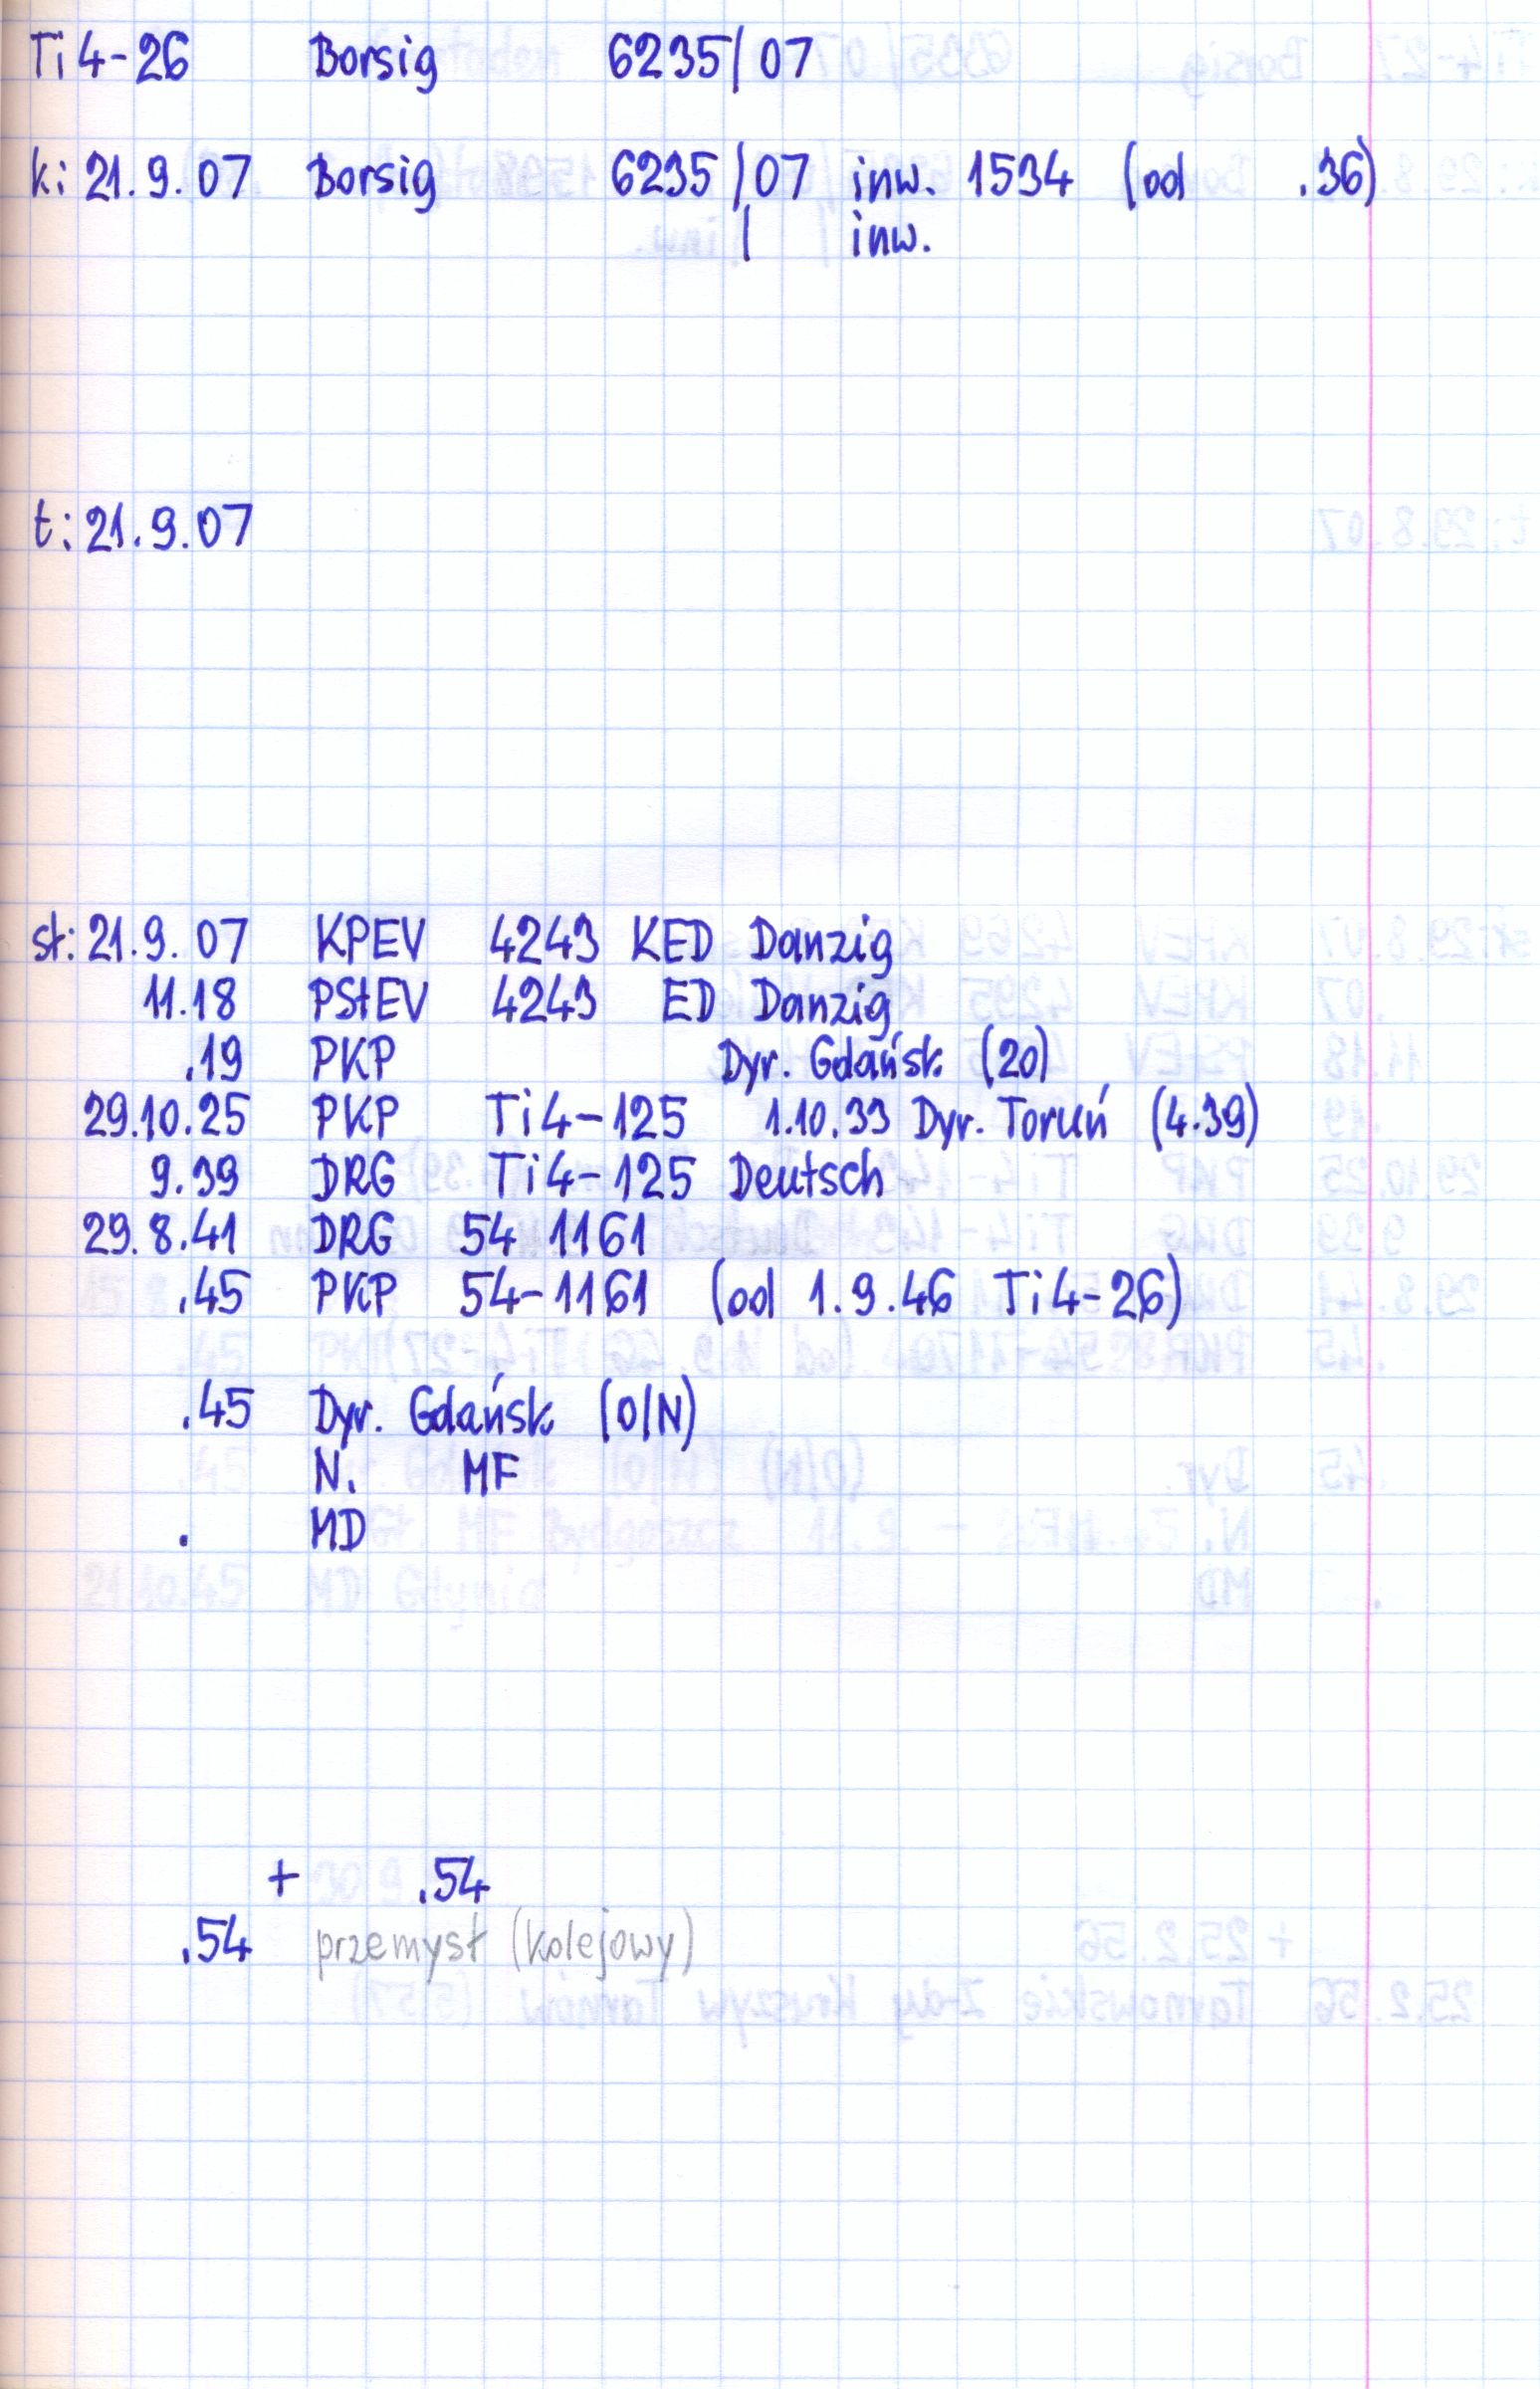 Ti4-26 Borsig 6235/07
k: 21.9.07 Borsig 6235/07 inw. 1534 (od .36)
/ inw.
t: 21.9.07
st: 21.9.07 KPEV 4243 KED Danzig
11.18 PStEV 4243 ED Danzig
.19 PKP Dyr. Gdańsk (20)
29.10.25 PKP Ti4-125 1.10.33 Dyr. Toruń (4.39)
9.39 DRG Ti4-125 Deutsch
29.8.41 DRG 54 1161
.45 PKP 54-1161 (od 1.9.46 Ti4-26)
.45 Dyr. Gdańsk (O/N)
N. MF
. MD
+ .54
.54 przemysł (kolejowy)